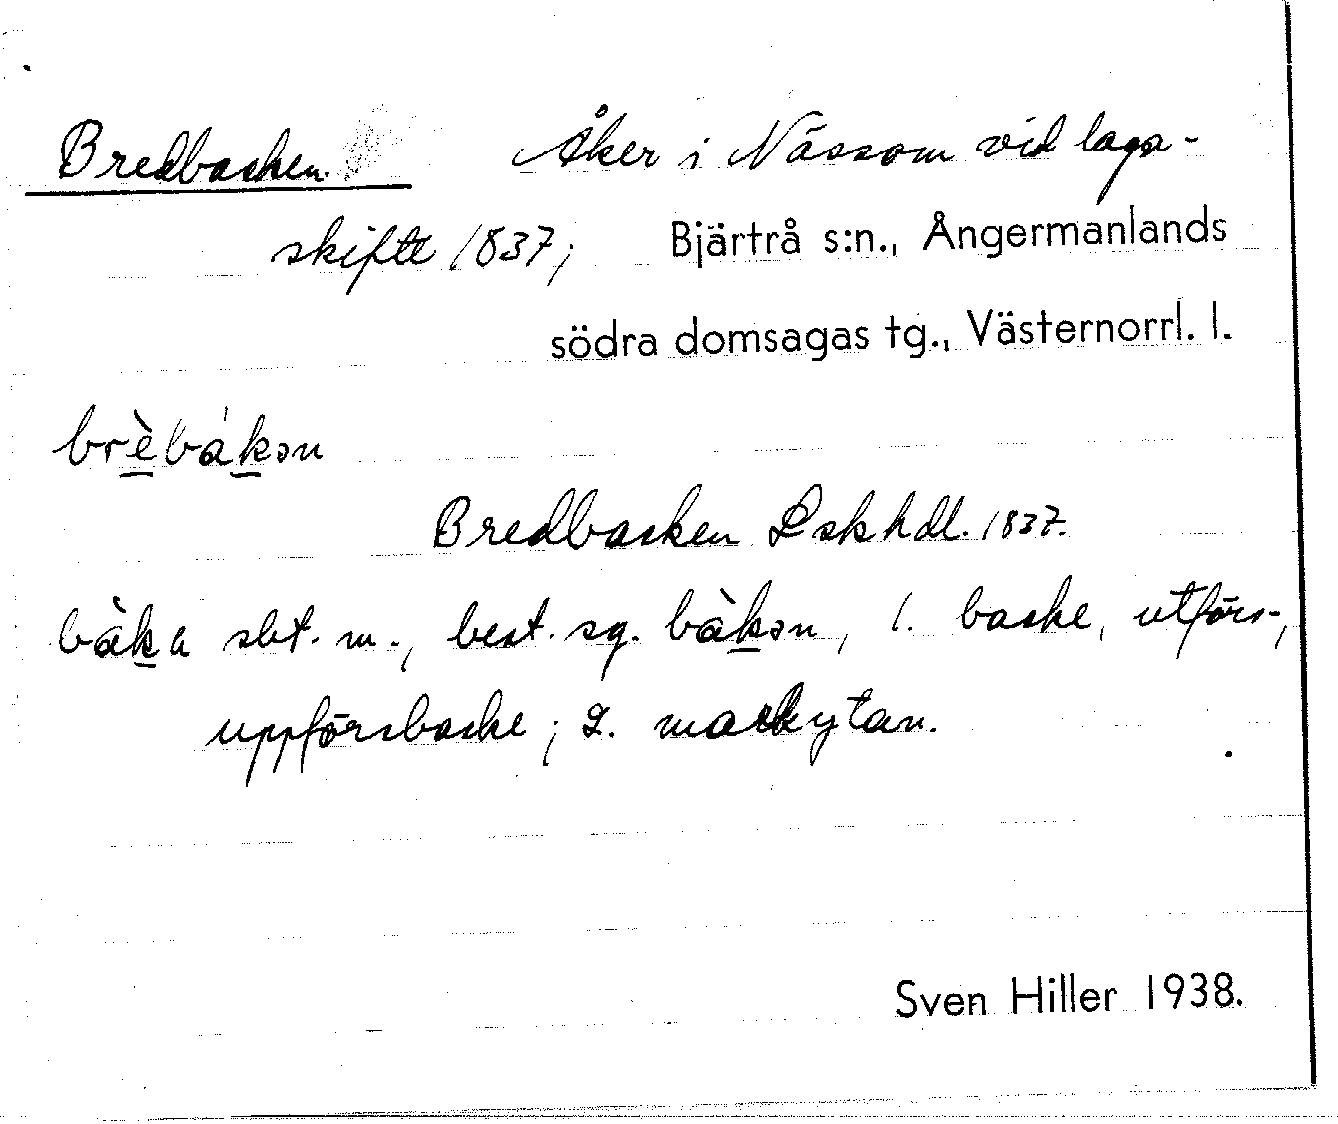 Bredbacken. Åker i Nässom vid laga-
skifte 1837; Bjärtrå s:n., Ångermanlands
södra domsagas tg., Västernorrl. l.
brèbákən
Bredbacken Lskhdl. 1837.
bàka sbt. m., best. sg. bàkən, 1. backe, utförs-,
uppförsbacke; 2. markytan.
Sven Hiller 1938.